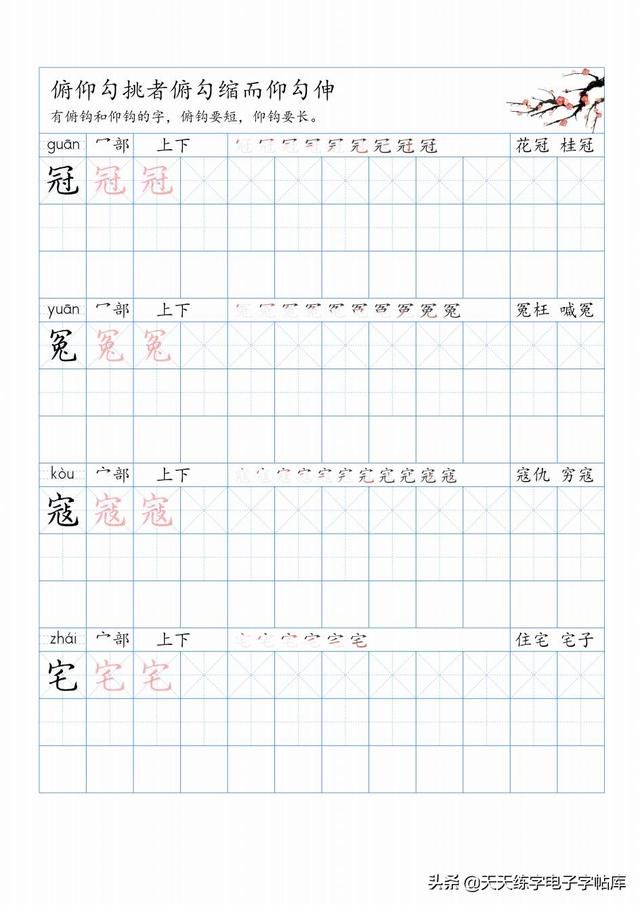 俯仰勾挑者俯勾缩而仰勾伸
有俯钩和仰钩的字，俯钩要短，仰钩要长。
guān 冖部 上下 花冠 桂冠
冠 冠 冠
yuān 冖部 上下 冤枉 喊冤
冤 冤 冤
kòu 宀部 上下 寇仇 穷寇
寇 寇 寇
zhái 宀部 上下 住宅 宅子
宅 宅 宅
头条 @天天练字电子字帖库